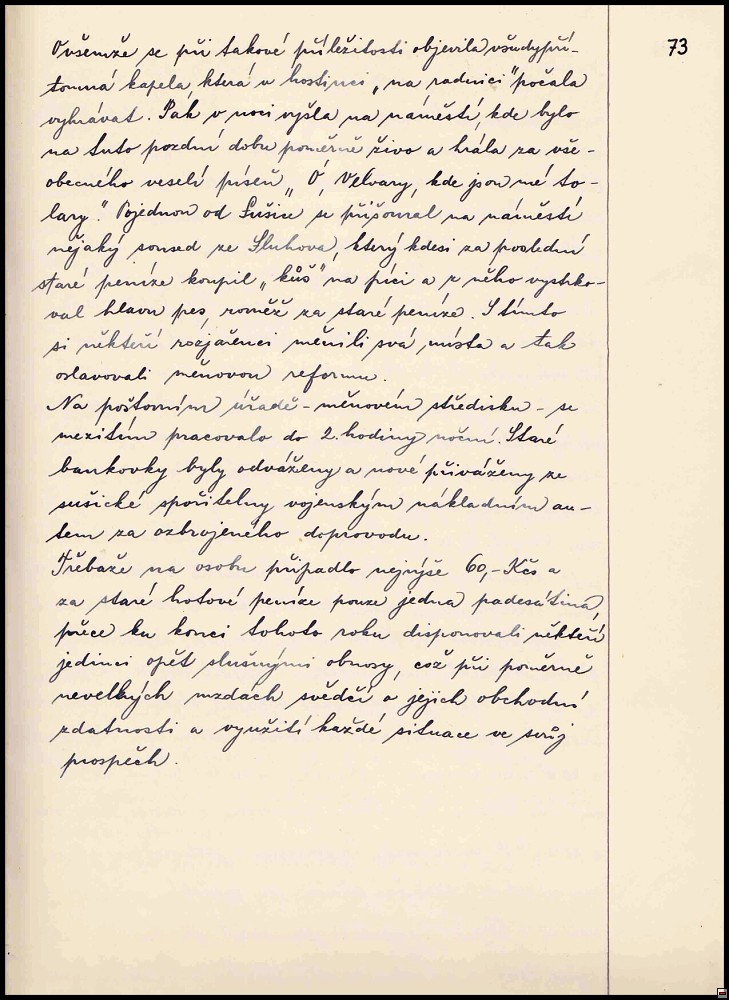 73
Ovšemže se při takové příležitosti objevila všudypří-
tomná kapela, která v hostinci „na radnici" počala
vyhrávat. Pak v noci vyšla na náměstí, kde bylo
na tuto pozdní dobu poměrně živo a hrála za vše-
obecného veselí píseň „Ó, Velvary, kde jsou mé to-
lary". Pojednou od Sušice se přišoural na náměstí
nějaký soused ze Sluhova, který kdesi za poslední
staré peníze koupil „kůš" na píci a z něho vystrko-
val hlavu pes, rovněž za staré peníze. S tímto
si někteří rozjařenci měnili svá místa a tak
oslavovali měnovou reformu.
Na poštovním úřadě - měnovém středisku - se
mezitím pracovalo do 2. hodiny noční. Staré
bankovky byly odváženy a nové přiváženy ze
sušické spořitelny vojenským nákladním au-
tem za ozbrojeného doprovodu.
Třebaže na osobu připadlo nejvýše 60,- Kčs a
za staré hotové peníze pouze jedna padesátina,
přece ku konci tohoto roku disponovali někteří
jedinci opět slušnými obnosy, což při poměrně
nevelkých mzdách svědčí o jejich obchodní
zdatnosti a využití každé situace ve svůj
prospěch.